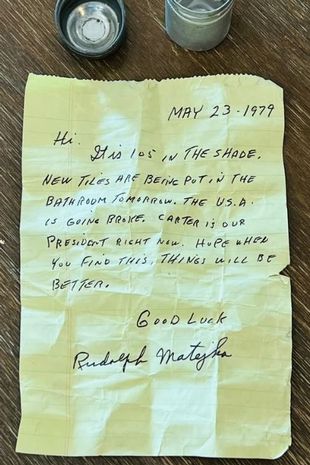 MAY 23-1979
Hi.
It is 105 IN THE SHADE.
NEW TILES ARE BEING PUT IN THE
BATHROOM TOMORROW. THE U.S.A.
IS GOING BROKE. CARTER IS OUR
PRESIDENT RIGHT NOW. HOPE WHEN
YOU FIND THIS, THINGS WILL BE
BETTER.
GOOD LUCK
Rudolph Matejka